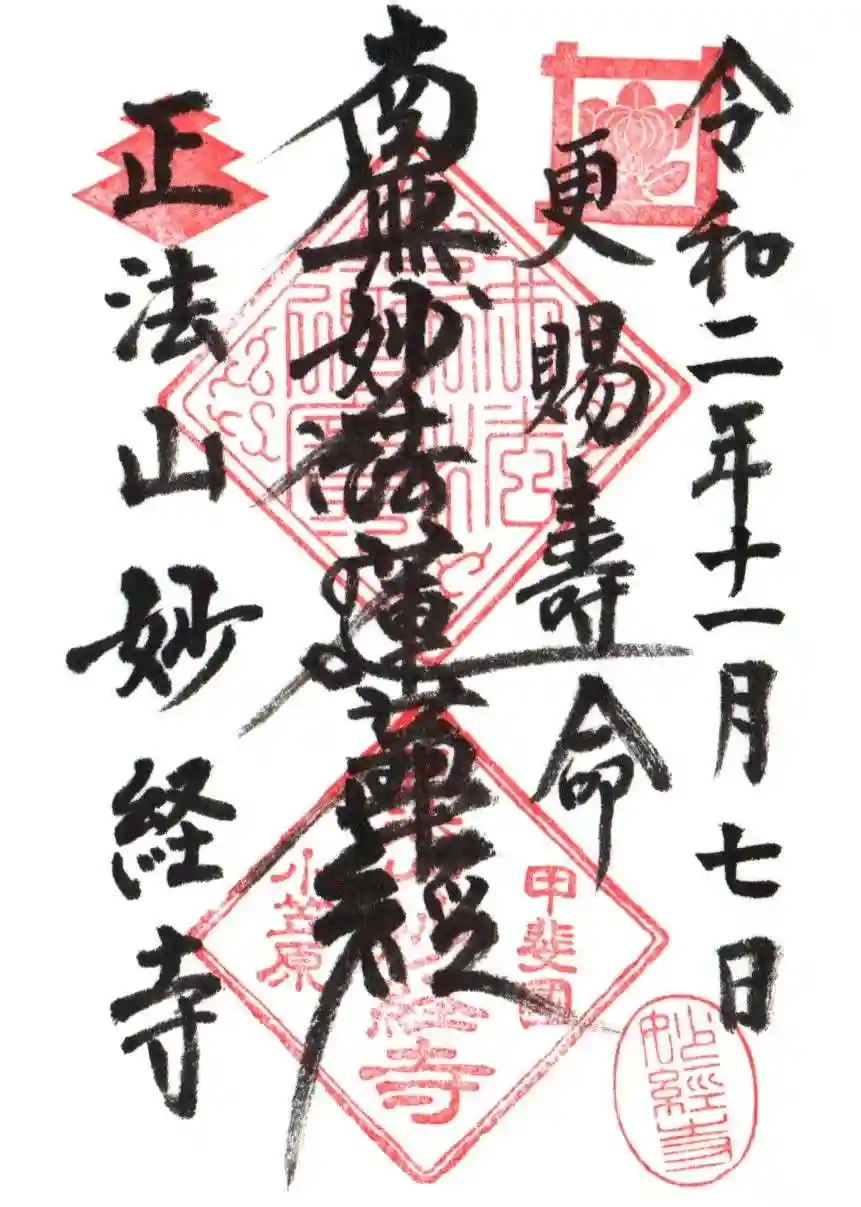 令和二年十一月七日
更賜壽命
南無妙法蓮華経
正法山妙経寺
甲斐國
小笠原
妙經寺